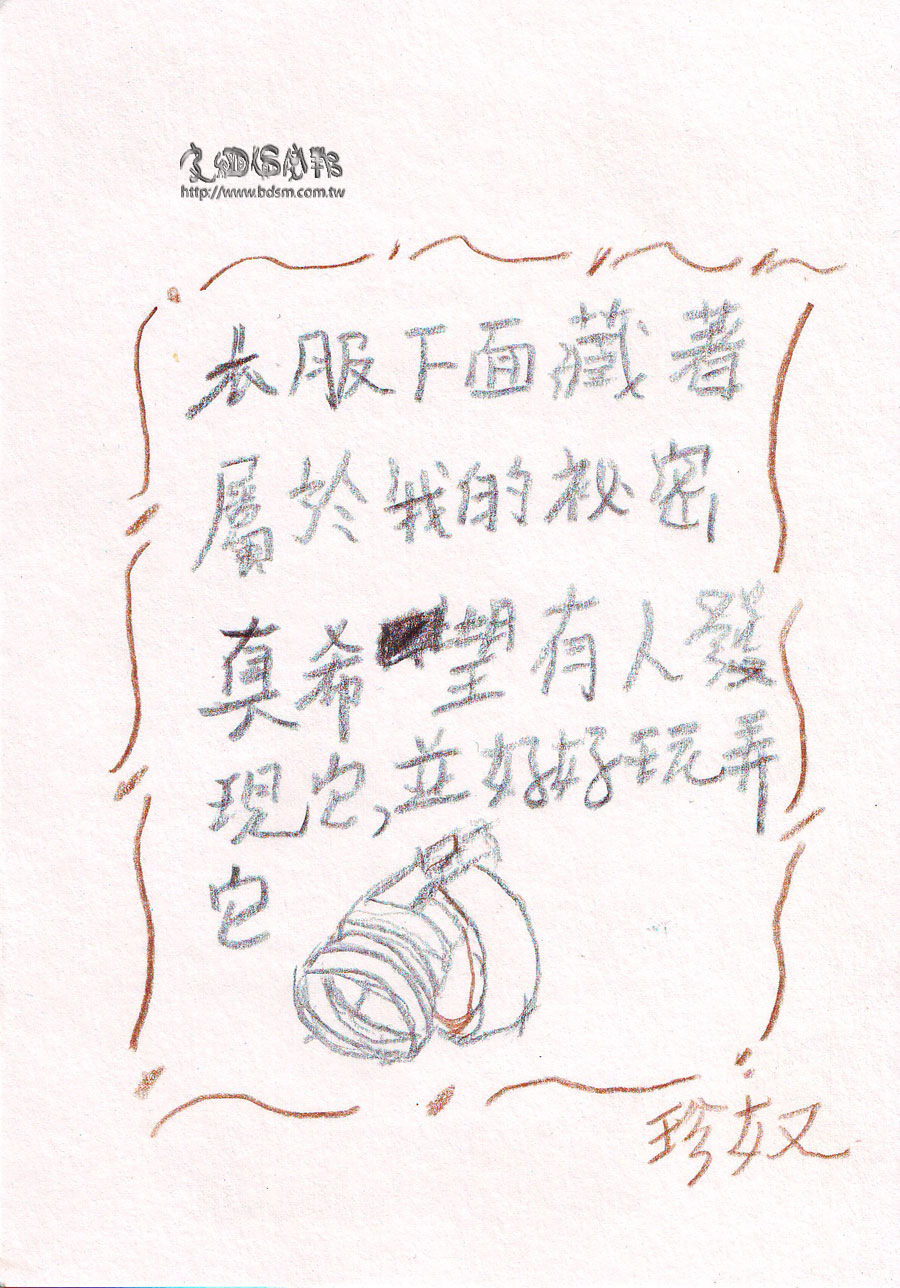 http://www.bdsm.com.tw
衣服下面藏著
屬於我的祕密
真希望有人發
現它,並好好玩弄
它
珍奴